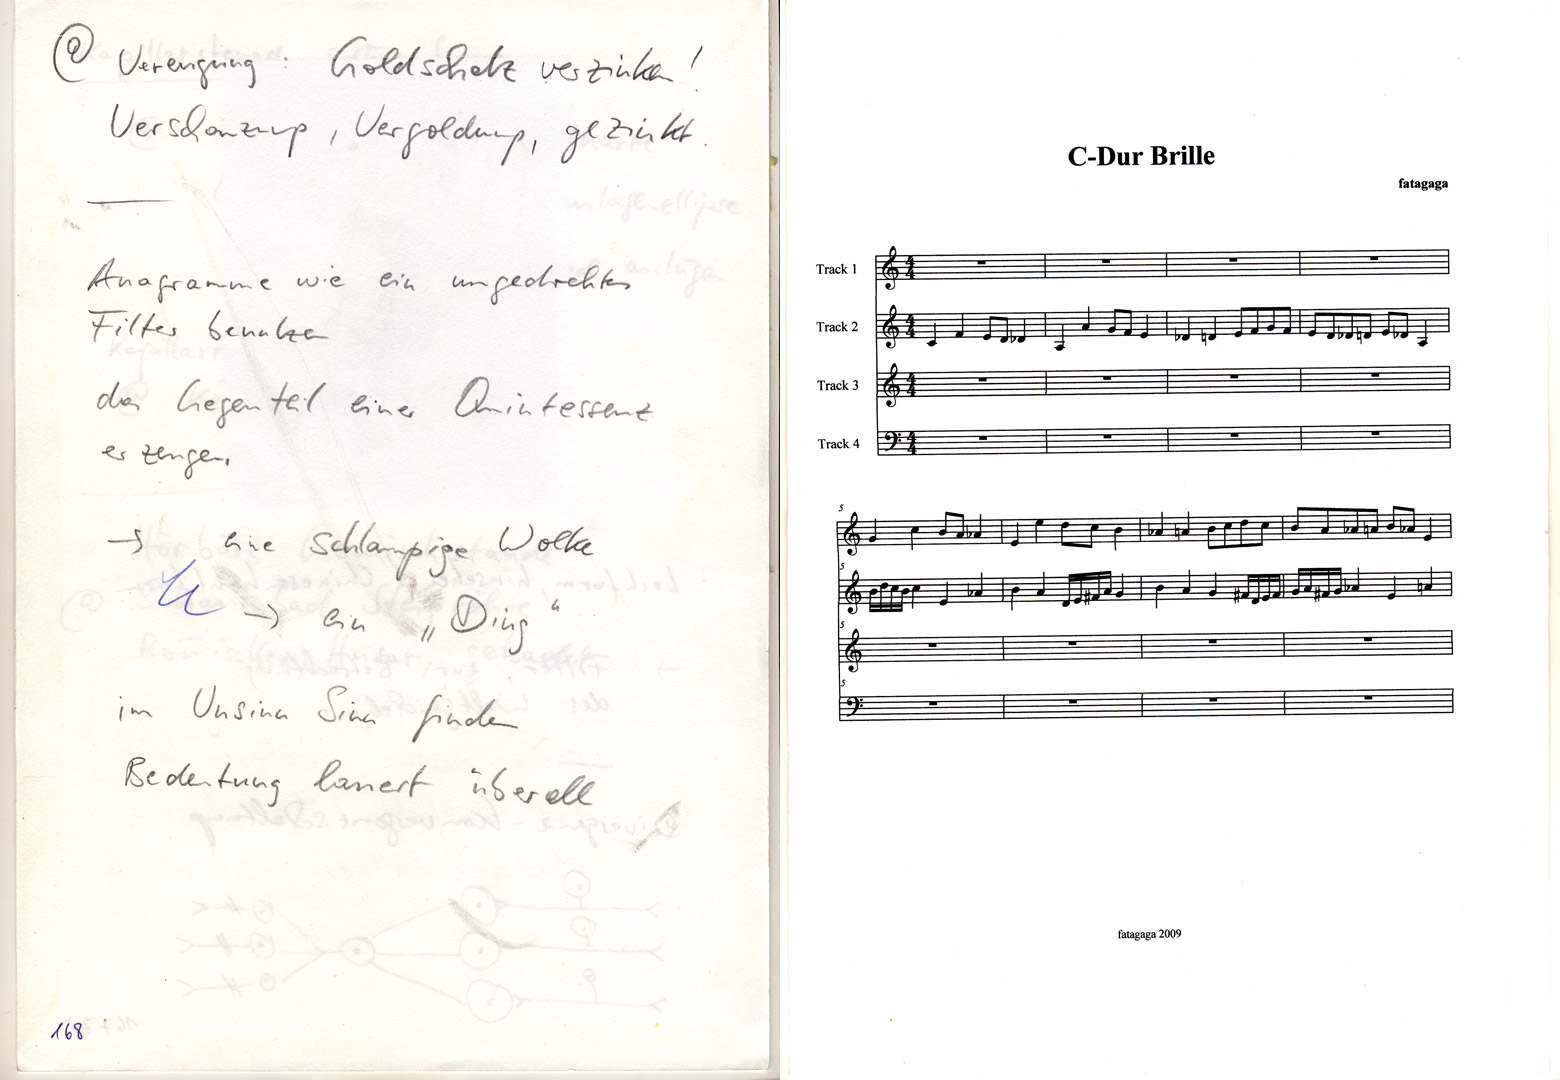 @ Verengung: Goldschatz verzinken!
Verschanzung, Vergoldung, gezinkt.
Anagramme wie ein umgedrehtes
Filter benutzen
das Gegenteil einer Quintessenz
erzeugen.
→ eine schlampige Wolke
→ ein „Ding“
im Unsinn Sinn finden
Bedeutung lauert überall
168
C-Dur Brille
fatagaga
Track 1
Track 2
Track 3
Track 4
5
5
5
5
fatagaga 2009